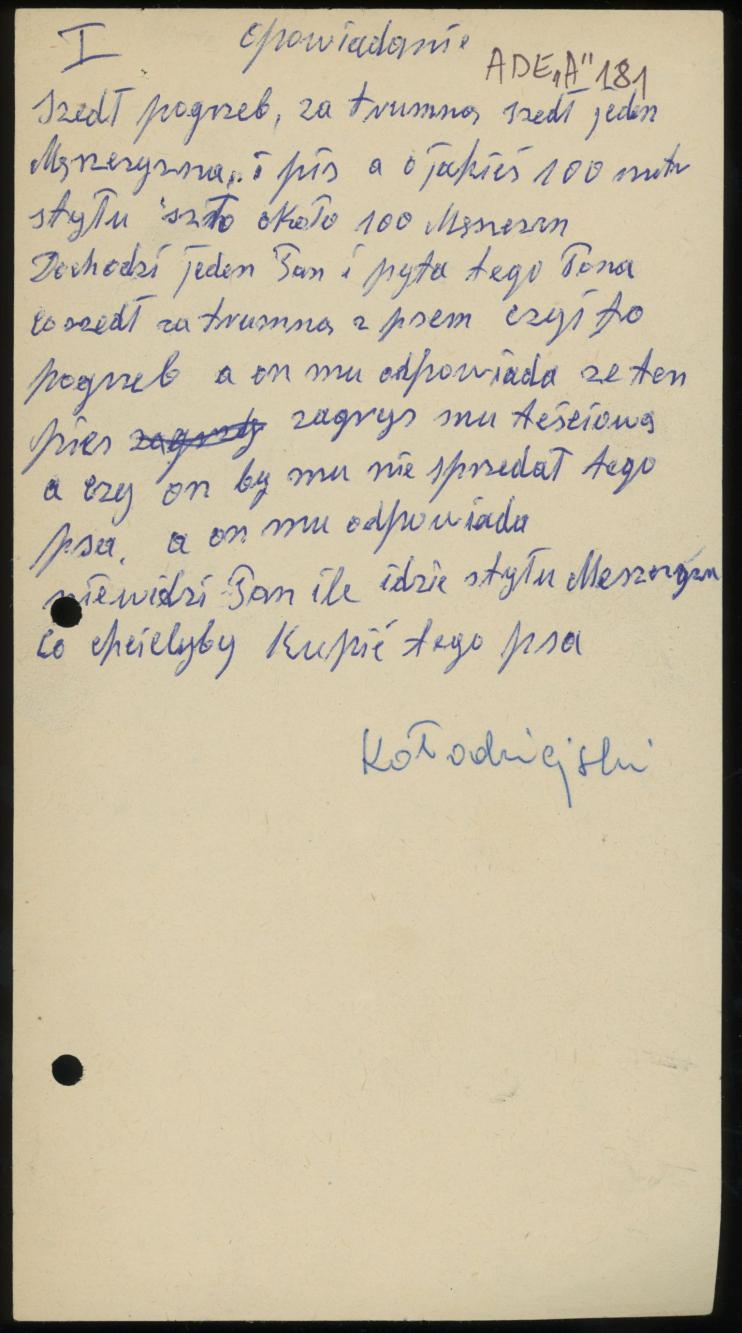 I opowiadanie
ADE „A" 181
Szedł pogrzeb, za trumną szedł jeden
Męzczyzna, i pis a o jakieś 100 metr
stytu szło około 100 Męzczzn
Dochodzi jeden Pan i pyta tego Pana
co szedł za trumną z psem czyi to
pogrzeb a on mu odpowiada ze ten
pies zagryz zagrys mu teściową
a czy on by mu nie sprzedał tego
psa, a on mu odpowiada
niewidzi Pan ile idzie stytu Męzczyzn
co chcielyby Kupić tego psa
Kołodziejski